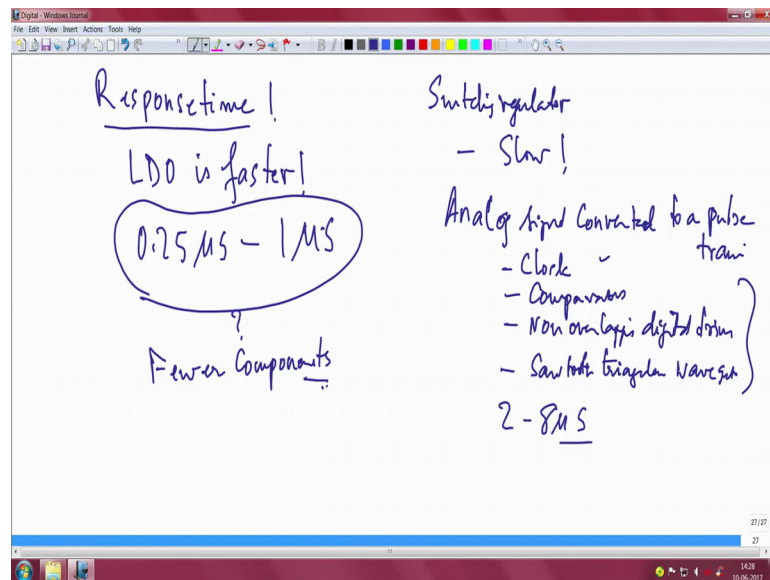 Digital - Windows Journal
File Edit View Insert Actions Tools Help
Response time!
LDO is faster!
0.25 MS - 1 MS
?
Fewer Components
regulator
- Slow!
Analog Converted to a pulse
train
- Clock
- Comparators
- Non overlapping digital
- Sawtooth triangular
2 - 8 MS
27/27
27
14:28
10-06-2017